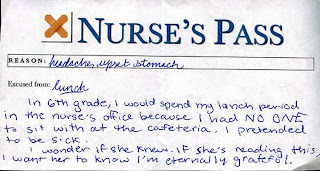 NURSE'S PASS
REASON: headaches, upset stomach
Excused from: lunch
In 6th grade, I would spend my lunch period
in the nurse's office because I had NO ONE
to sit with at the cafeteria. I pretended
to be sick.
I wonder if she knew. If she's reading this,
I want her to know I'm eternally grateful.